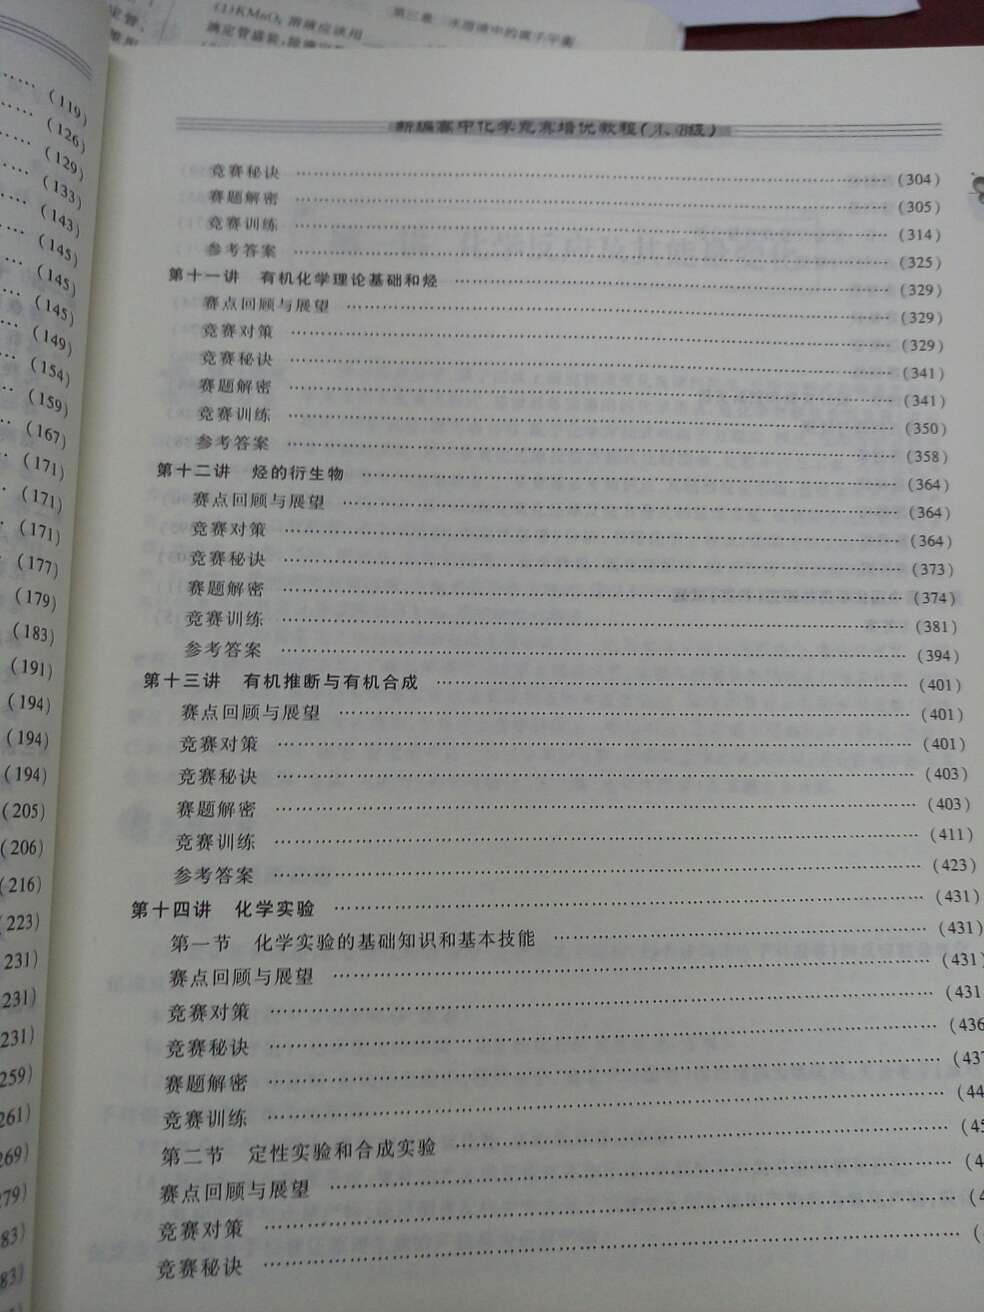 第三章 水溶液中的离子平衡
(1)KMnO₄ 溶液应该用
滴定管盛装,
(119)
(126)
(129)
(133)
(143)
(145)
(145)
(145)
(149)
(154)
(159)
(167)
(171)
(171)
(171)
(177)
(179)
(183)
(191)
(194)
(194)
(194)
(205)
(206)
(216)
223)
231)
231)
231)
259)
261)
269)
279)
83)
83)
新编高中化学竞赛培优教程(A、B级)
竞赛秘诀 …… (304)
赛题解密 …… (305)
竞赛训练 …… (314)
参考答案 …… (325)
第十一讲 有机化学理论基础和烃 …… (329)
赛点回顾与展望 …… (329)
竞赛对策 …… (329)
竞赛秘诀 …… (341)
赛题解密 …… (341)
竞赛训练 …… (350)
参考答案 …… (358)
第十二讲 烃的衍生物 …… (364)
赛点回顾与展望 …… (364)
竞赛对策 …… (364)
竞赛秘诀 …… (373)
赛题解密 …… (374)
竞赛训练 …… (381)
参考答案 …… (394)
第十三讲 有机推断与有机合成 …… (401)
赛点回顾与展望 …… (401)
竞赛对策 …… (401)
竞赛秘诀 …… (403)
赛题解密 …… (403)
竞赛训练 …… (411)
参考答案 …… (423)
第十四讲 化学实验 …… (431)
第一节 化学实验的基础知识和基本技能 …… (431)
赛点回顾与展望 …… (431)
竞赛对策 …… (431
竞赛秘诀 …… (436
赛题解密 …… (437
竞赛训练 …… (44
第二节 定性实验和合成实验 …… (45
赛点回顾与展望 …… (4
竞赛对策 …… (4
竞赛秘诀 …… (